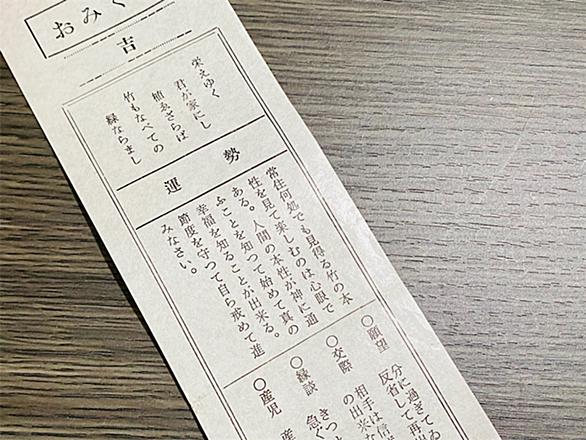 おみく
吉
栄えゆく
君が家にし
植ゑざらば
竹もなべての
緑ならまし
運勢
常住何処でも見得る竹の本
性を見て楽しむのは心眼で
ある。人間の本性が神に通
ふことを知つて始めて真の
幸福を知ることが出来る。
節度を守つて自ら戒めて進
みなさい。
○願望
分に過ぎてる
反省して再出
○交際
相手は信
の出来な
○縁談
きつと
急ぐ
○産児
産